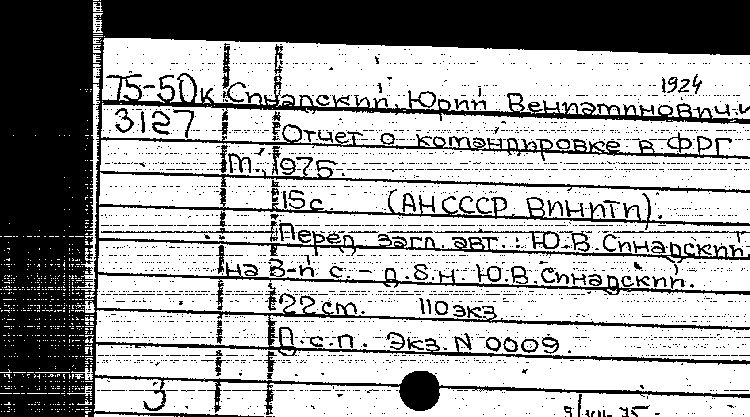 1924
75-5Dк Синадский, Юрий Вениаминович.
3127 Отчет о командировке в ФРГ
М., 1975.
15с. (АН СССР. ВИНИТИ).
Перед загл. авт.: Ю.В. Синадский.
на 3-й с. - д.б.н. Ю.В. Синадский.
22 см. 110 экз
Д.с.п. Экз. N 0009.
3